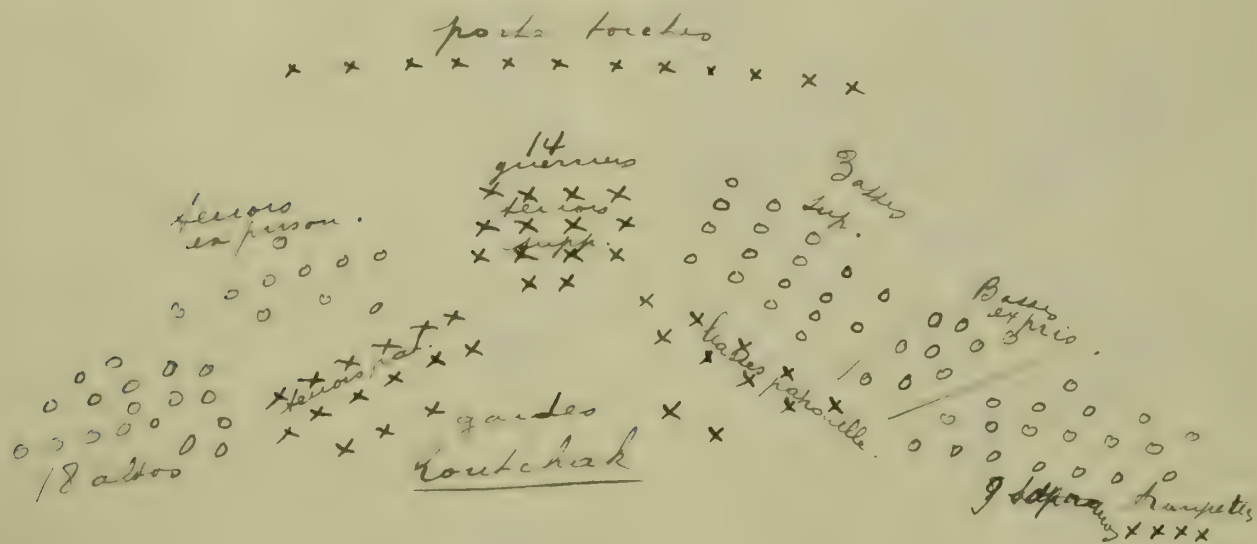 porte torches
14
guerriers
tenors
supp.
tenors
ex prison.
Basses
sup.
Basses
ex pris.
tenors pat.
basses patrouille.
gardes
Koutchak
18 altos
9 sopranos
trompettes